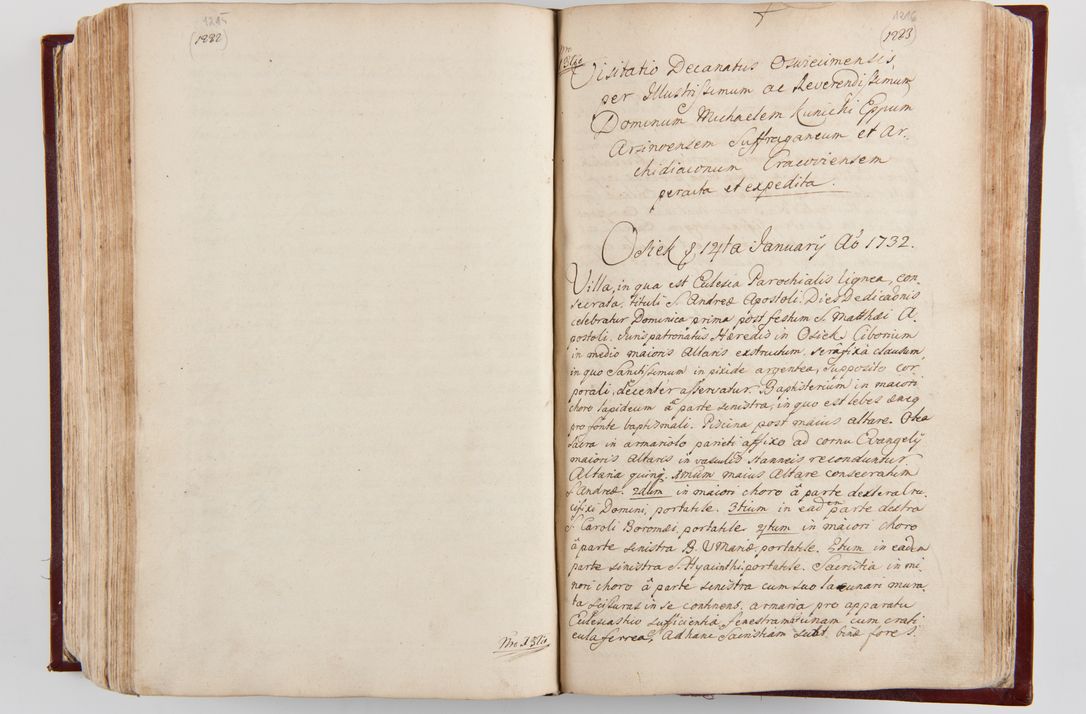 1215
(1282)
1216
(1283)
Visitatio Decanatus Osviecimensis,
per Illustrissimum ac Reverendissimum
Dominum Michaelem Kunicki Eppum
Arsinoensem Suffraganeum et Ar-
chidiaconum Cracoviensem
peracta et expedita.
Osiek d. 14ta January Aő 1732.
Villa, in qua est Ecclesia Parochialis lignea, con-
secrata, tituli S. Andreæ Apostoli. Dies Dedicaõnis
celebratur Dominica prima post festum S. Matthæi A-
postoli. Juris patronatûs Hæredis in Osiek. Ciborium
in medio maioris Altaris exstructum, serâ fixâ clausum,
in quo Sanctissimum in pixide argentea, supposito cor-
porali, decentèr asservatur. Baptisterium in maiori
choro lapideum â parte sinistra, in quo est lebes
pro fonte baptismali. Piscina post maius altare. Olea
sacra in armariolo parieti affixo ad cornu Evangelÿ
maioris Altaris in vasculis stanneis reconduntur
Altaria quinq. 1mum maius Altare consecratum
S. Andreæ. 2dum in maiori choro â parte dextera Cru-
cifixi Domini, portatile. 3tium in eadem parte dextra
S. Caroli Boromæi, portatile. 4tum in maiori choro
â parte sinistra B. V. Mariæ, portatile. 5tum in eadem
parte sinistra S. Hyacinthi portatile. Sacristia in mi-
nori choro â parte sinistra cum suo lacunari mura-
ta scissuras in se continens, armaria pro apparatu
Ecclesiastico sufficientia, fenestram unam cum crati-
cula ferrea, Ad hanc Sacristiam sunt binæ fores.